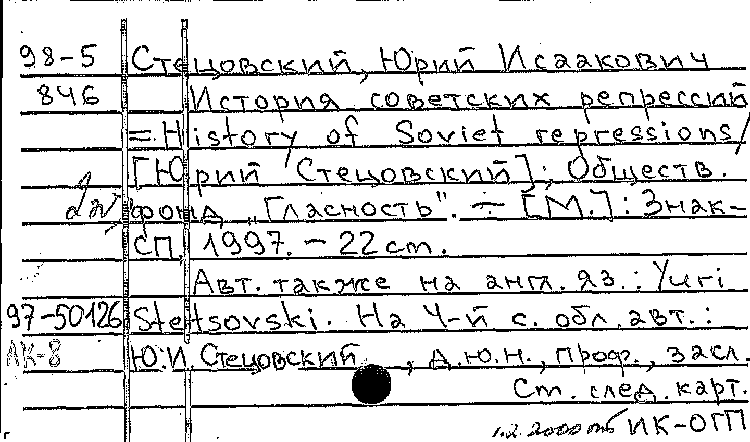 98-5 Стецовский, Юрий Исаакович
846 История советских репрессий
= History of Soviet repressions/
[Юрий Стецовский]; Обществ.
фонд „Гласность". - [М.]: Знак-
СП, 1997. - 22 см.
Авт. также на англ. яз.: Yuri
97-50126 Stetsovski. На 4-й с. обл. авт.:
АК-8 Ю.И. Стецовский, д.ю.н., проф., засл.
См. след. карт.
1.2.2000 ИК-ОГП